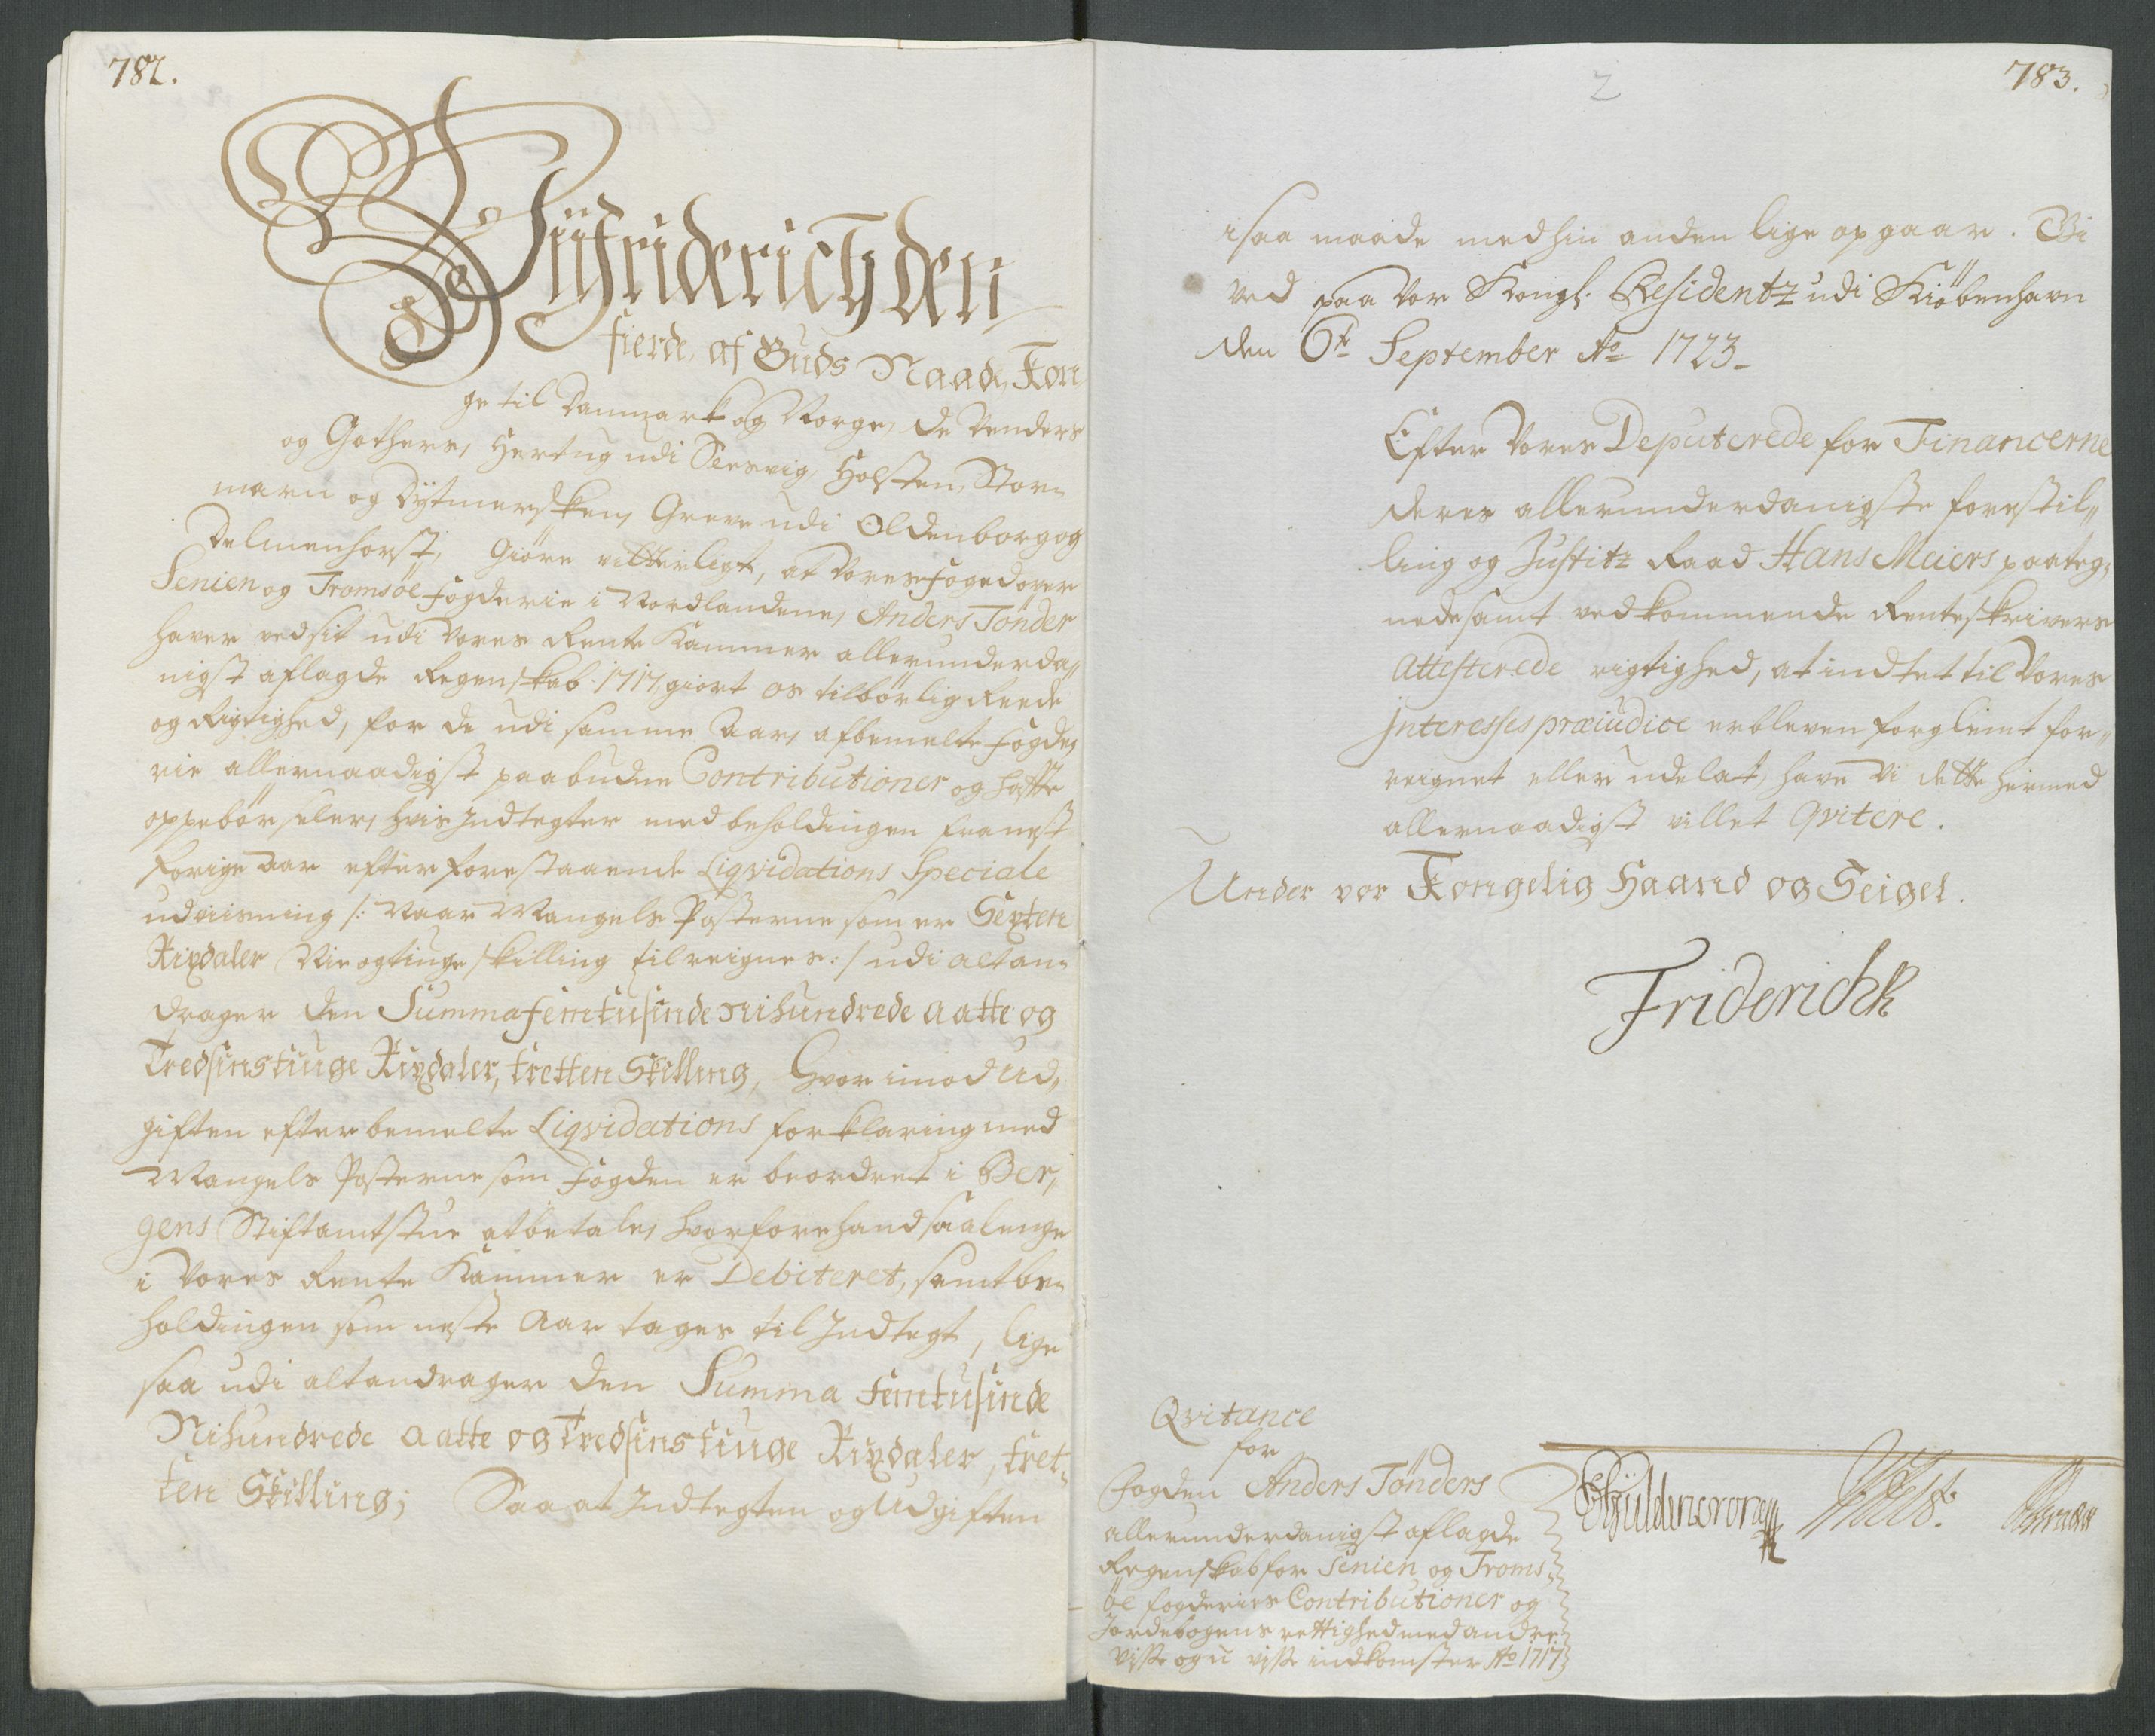 782.
Vi Friderich den
fierde, af Guds Naade, Kon
ge til Danmark og Norge, de Venders
og Gothers, Hertug udi Slesvig Holsten, Stor„
marn og Dytmersken, Greve udi Oldenborg og
Delmenhorst, Giöre vitterligt, at Vores Foged over
Senien og Tromsöe Fogderie i Nordlandene, Anders Tönder
haver ved sit udi Vores Rente Kammer allerunderda„
nigst aflagde Regenskab 1717, giort os tilbörlig Reede
og Rigtighed, for de udi samme Aar, af bemelte Fogde„
rie allernaadigst paabudne Contributioner og hafte
oppebörseler, hvis Indtegter med beholdingen fra nest
forige Aar efter forestaaende Liqvidations Speciale
udviisning /: Naar Mangels Posterne som er Sexten
Rixdaler Nie og tiuge skilling tilreignes :/ udi alt an„
drager den Summa Femtusinde Nihundrede aatte og
Tredsinstiuge Rixdaler, tretten Skilling, Hvorimod Ud„
giften efter bemelte Liqvidations forklaring med
Mangels Posterne som Fogden er beordret i Ber„
gens Stiftamtstue at betale, hvorfore hand saalenge
i Vores Rente Kammer er Debiteret, samt be„
holdingen som neste Aar tages til Indtegt, lige
saa udi alt andrager den Summa Femtusinde
Nihundrede aatte og Tredsinstiuge Rixdaler, tret„
ten Skilling; Saa at Indtegten og Udgiften
2
783.
i saa maade med hin anden lige opgaar. Givet
ved paa Vor Kongl. Residentz udi Kiöbenhavn
den 6te September Ao 1723
Efter Vores Deputerede for Financerne
deres allerunderdanigste forestil„
ling og Justitz Raad Hans Meiers paateg„
nede samt vedkommende Renteskrivers
Attesterede rigtighed, at indtet til Vores
Interesses præiudice er bleven forglemt for„
reignet eller udelat, have Vi dette hermed
allernaadigst villet Qvitere.
Under vor Kongelig Haand og Seigel.
Friderich R
Qvitance
for
Fogden Anders Tönders
allerunderdanigst aflagde
Regenskab for Senien og Troms„
öe fogderies Contributioner og
Jordebogens rettighed med andre
visse og u visse indkomster Ao 1717
Güldencrone